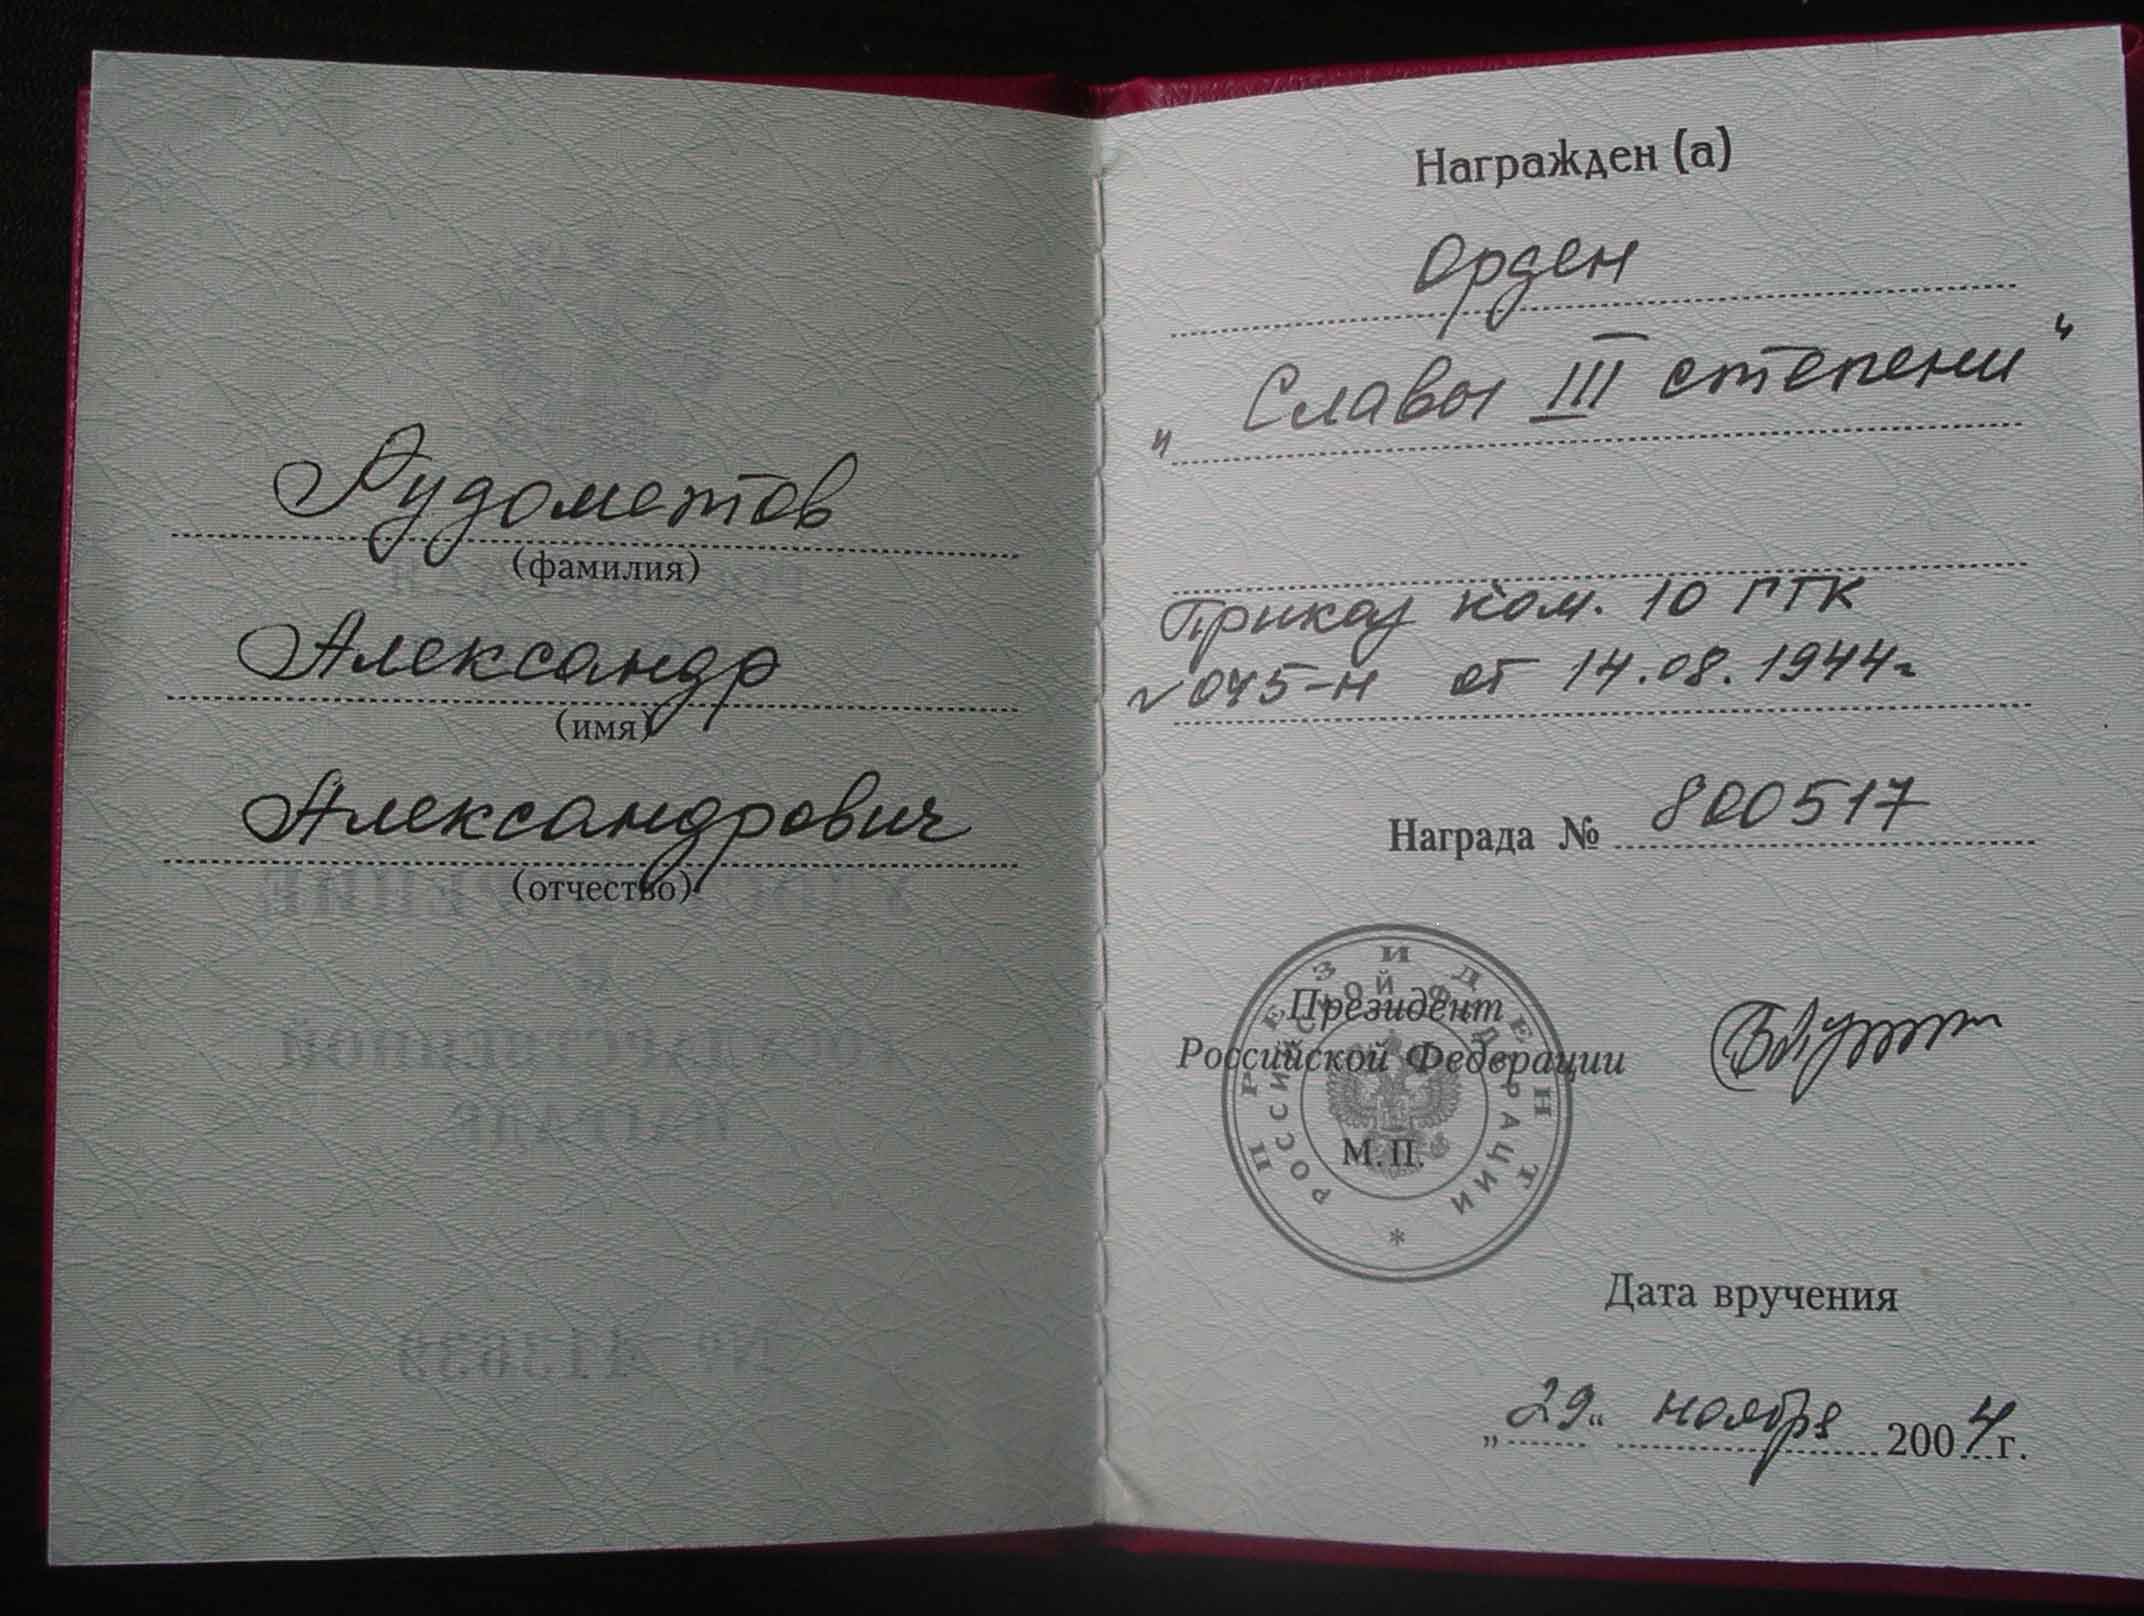 Рудометов
(фамилия)
Александр
(имя)
Александрович
(отчество)
Награжден (а)
Орден
„ Славы III степени “
Приказ ком. 10 ГТК
№ 045-н от 14.08.1944г
Награда № 800517
ПРЕЗИДЕНТ
РОССИЙСКОЙ ФЕДЕРАЦИИ
*
Президент
Российской Федерации
М.П.
Дата вручения
„ 29 “ ноября 2004 г.